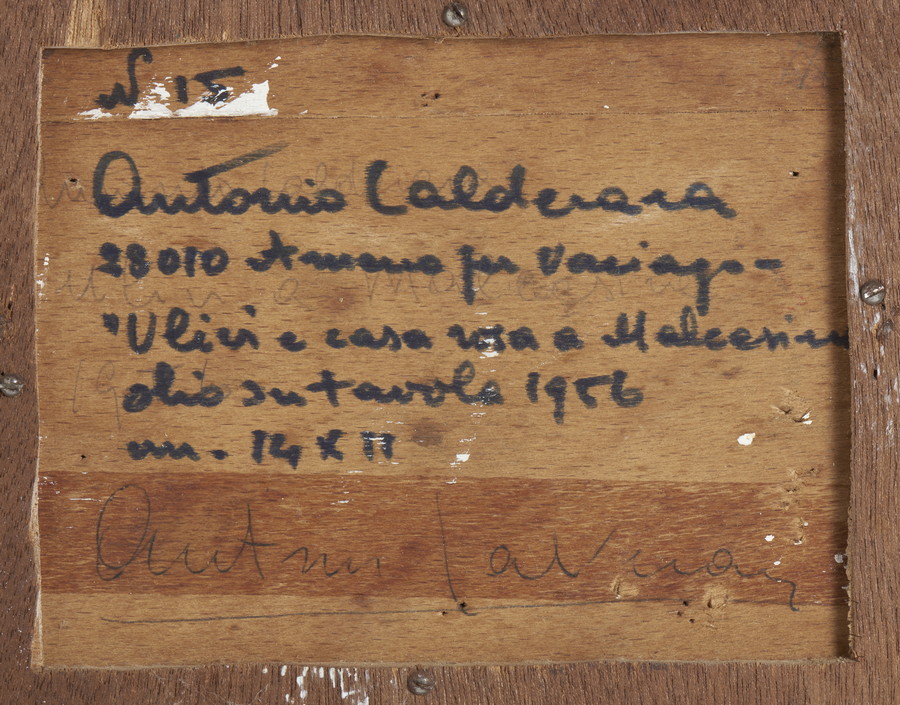 N 15
Antonio Calderara
28010 Ameno per Vaciago-
"Ulivi e casa rosa a Malcesine
olio su tavola 1956
cm. 14 x 11
Antonio Calderara